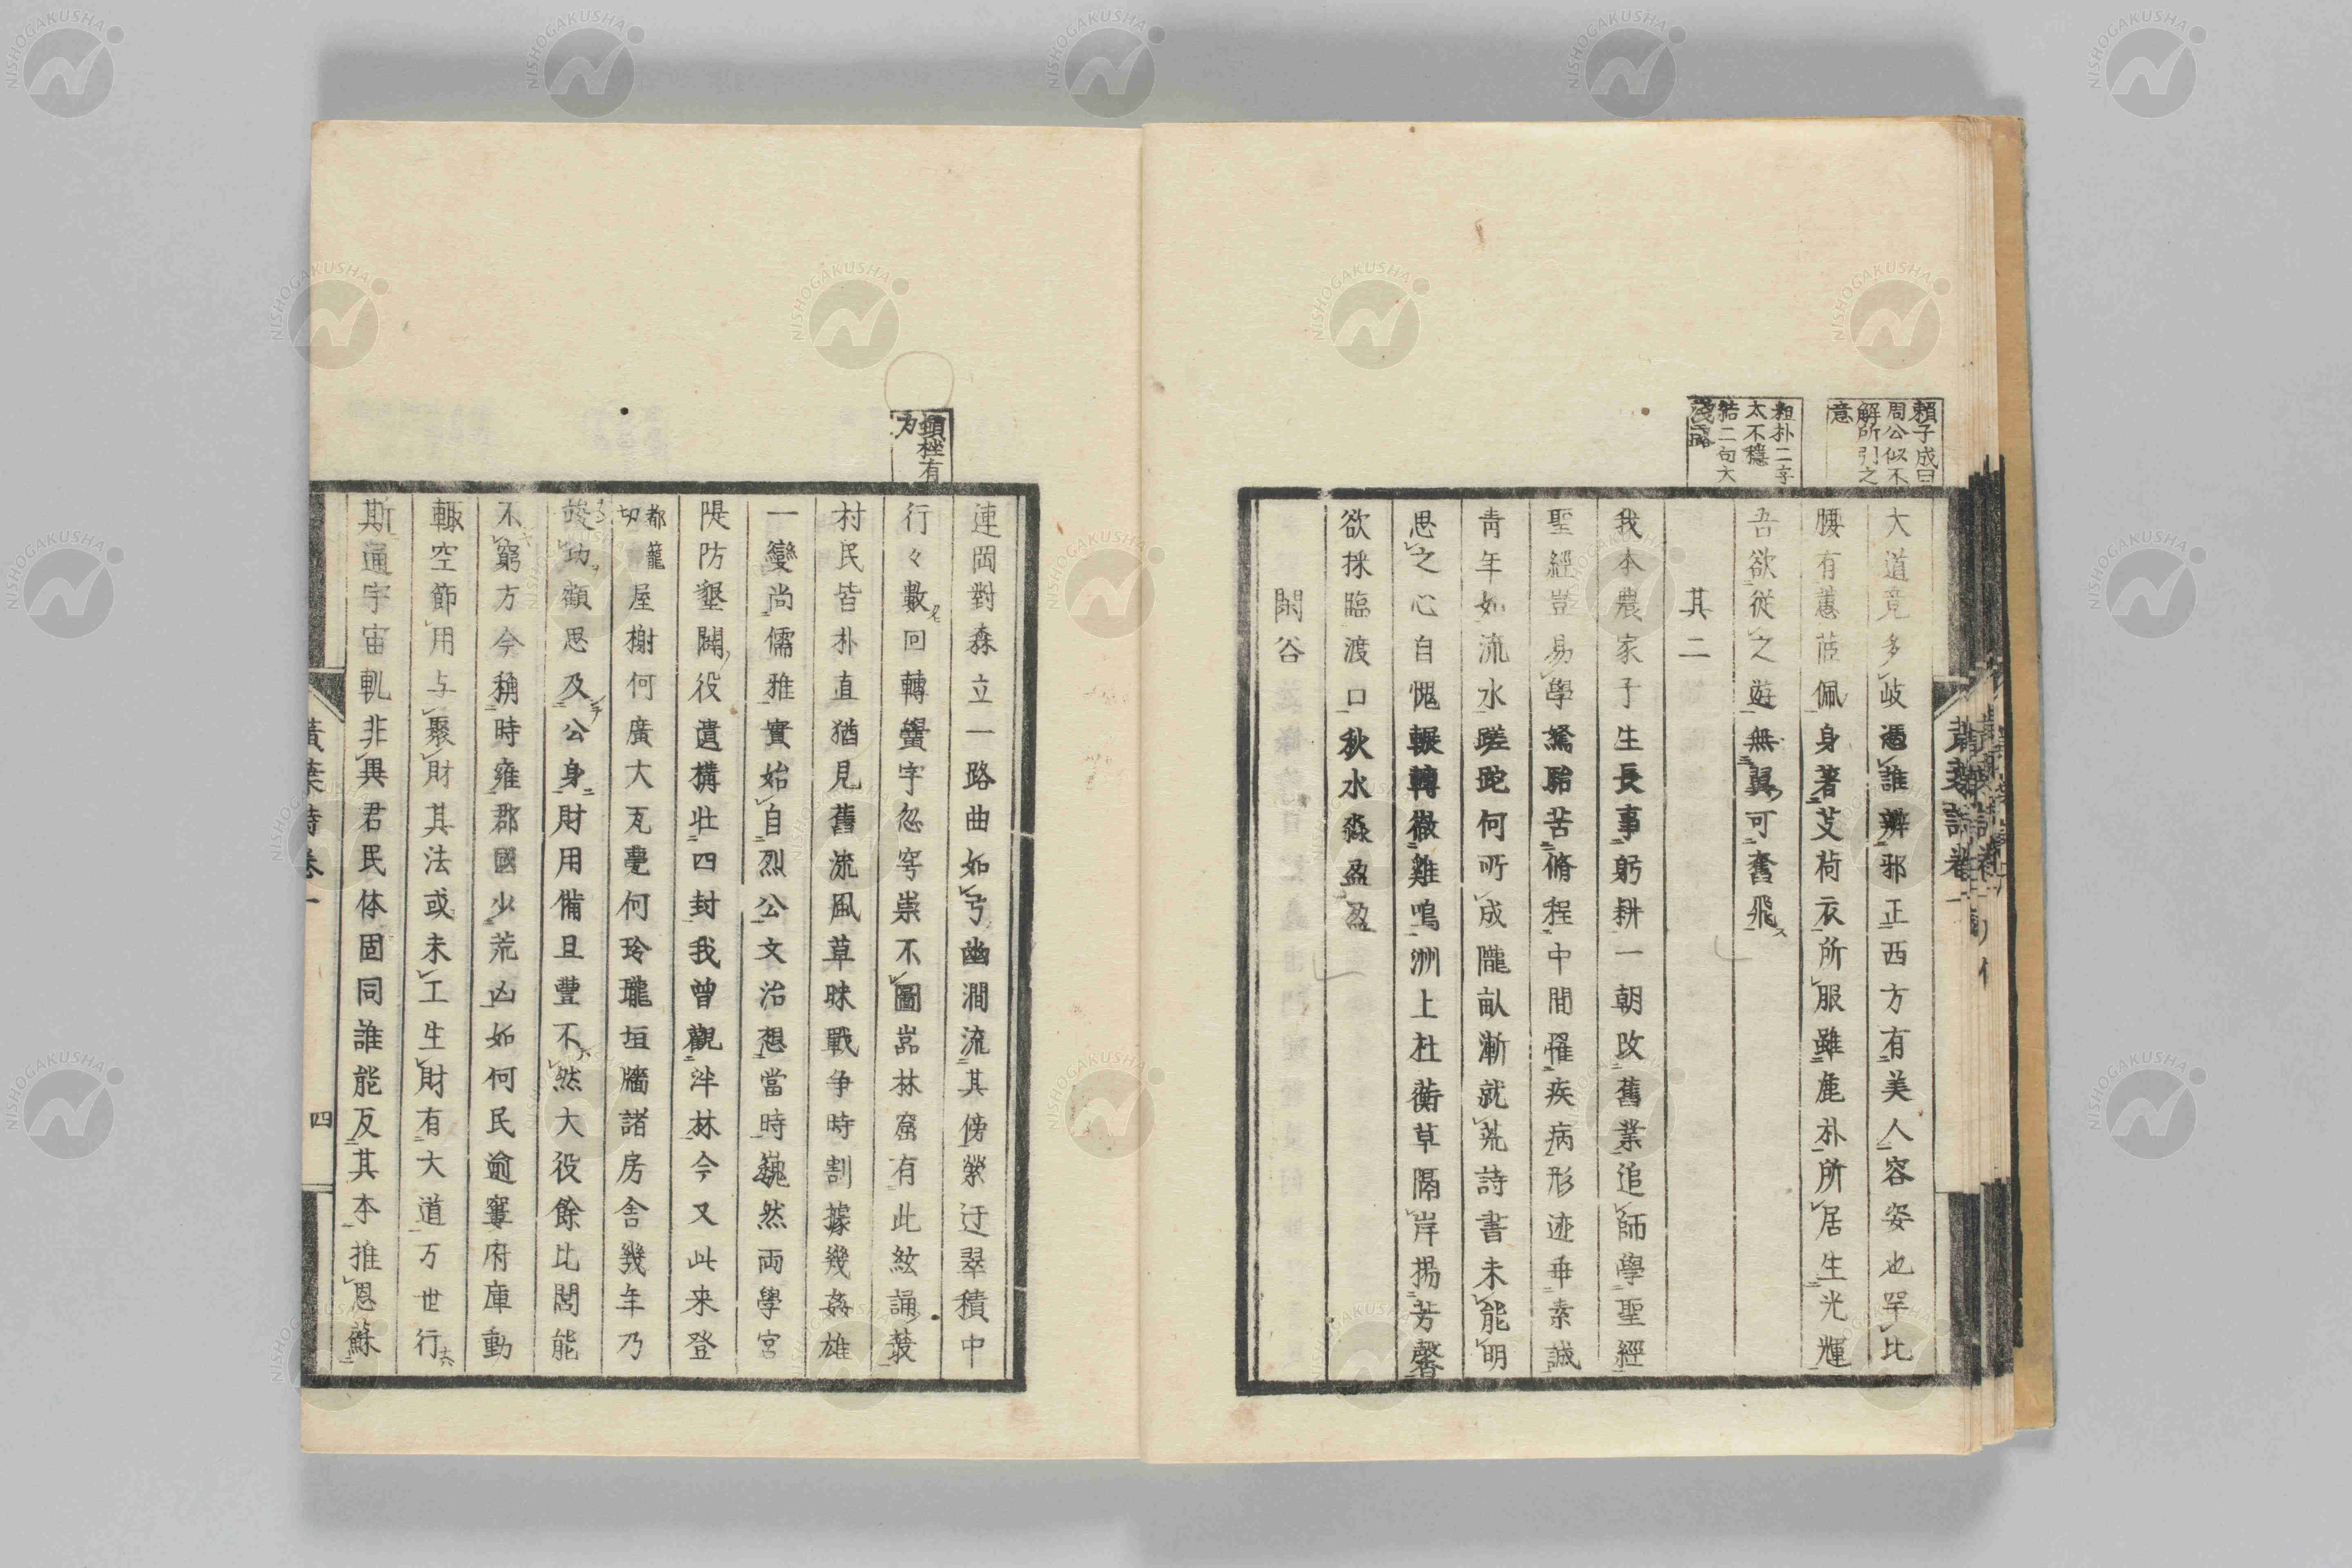 賴子成曰
周公似不
解所引之
意
粗朴二字
太不穩
結二句大
淺露
大道竟多岐憑誰辨邪正西方有美人容姿也罕比
腰有蕙茝佩身著芰荷衣所服雖鹿朴所居生光輝
吾欲從之遊無翼可奮飛
其二
我本農家子生長事躬耕一朝改舊業追師學聖經
聖經豈易學駑駘苦脩程中間罹疾病形迹乖素誠
青年如流水蹉跎何所成隴畝漸就荒詩書未能明
思之心自愧輾轉徹雞鳴洲上杜蘅草隔岸揚芳馨
欲採臨渡口秋水淼盈盈
閑谷
頓挫有
力
連岡對森立一路曲如弓幽澗流其傍縈迂翠積中
行々數回轉黌宇忽穹崇不圖嵓林窟有此絃誦叢
村民皆朴直猶見舊流風草昧戰争時割據幾姦雄
一變尚儒雅實始自烈公文治想當時巍然両學宮
隄防墾闢役遺構壮四封我曽觀泮林今又此来登
都籠
切
屋榭何廣大瓦甍何玲瓏垣牆諸房舎幾年乃
竣功顧思及公身財用備且豐不然大役餘比閭能
不窮方今稱時雍郡國少荒凶如何民逾窶府庫動
輙空節用与聚財其法或未工生財有大道万世行
斯通宇宙軌非異君民体固同誰能反其本推恩蘇
黄葉詩卷一
四